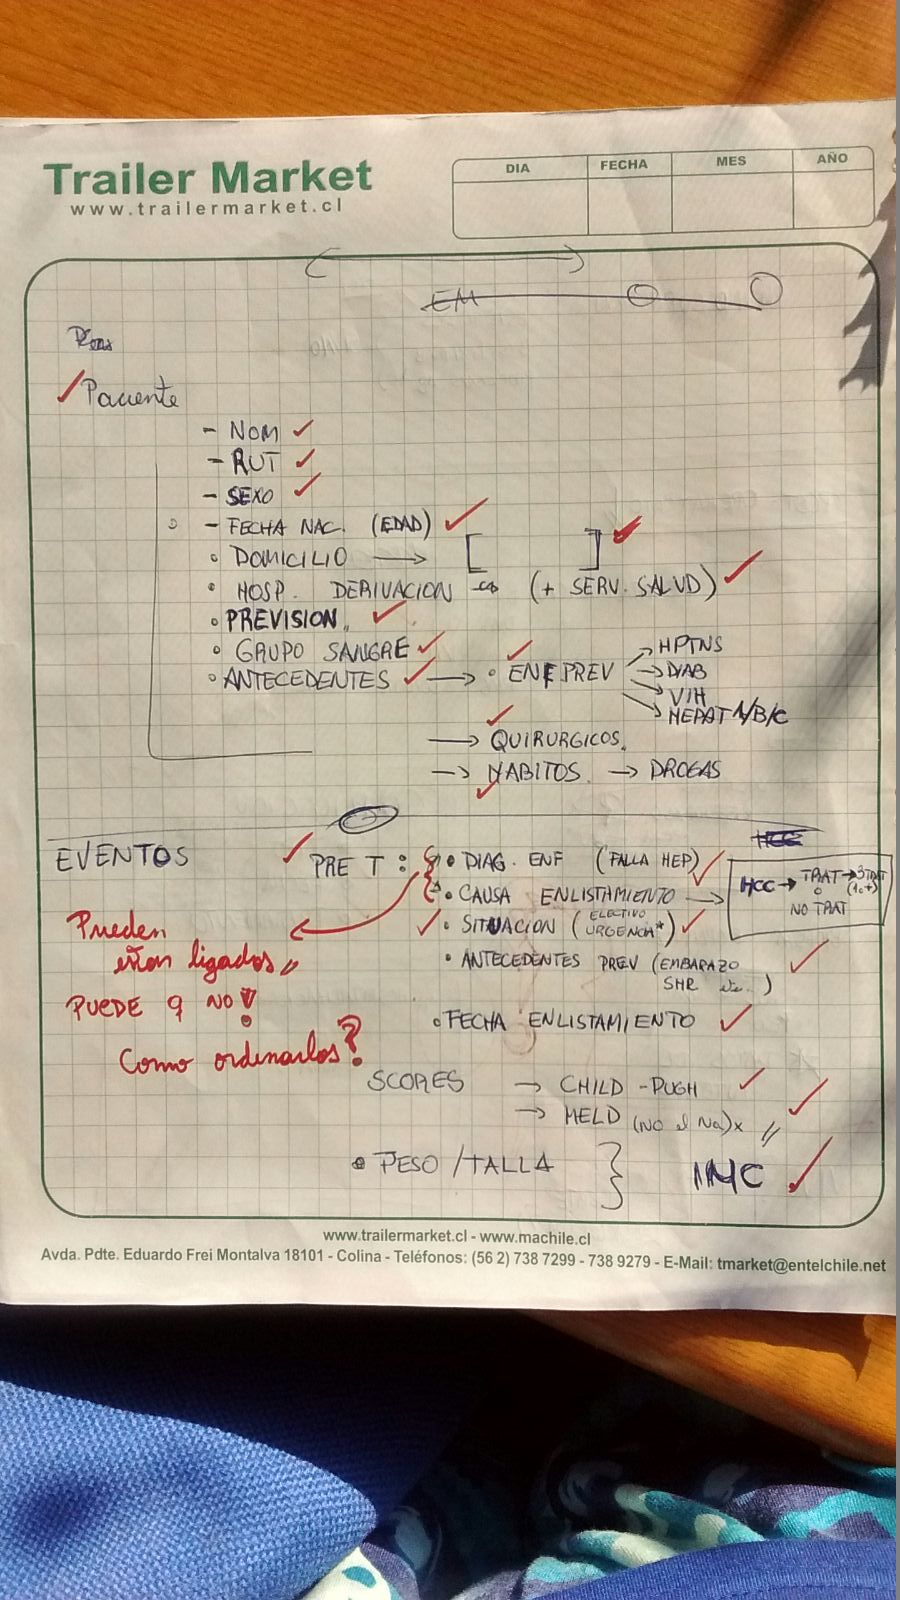 Trailer Market
www.trailermarket.cl
DIA FECHA MES AÑO
EM
Paciente
- NOM
- RUT
- SEXO
- FECHA NAC. (EDAD)
DOMICILIO → [ ]
HOSP. DERIVACION (+ SERV. SALUD)
PREVISION
GRUPO SANGRE
ANTECEDENTES → ENF PREV
→ HPTNS
→ DIAB
→ VIH
→ HEPAT A/B/C
→ QUIRURGICOS
→ HABITOS → DROGAS
EVENTOS
PRE T :
DIAG. ENF (FALLA HEP)
CAUSA ENLISTAMIENTO →
HCC → TRAT →
O
NO TRAT
SITUACION (ELECTIVO
URGENCIA*)
ANTECEDENTES PREV (EMBARAZO
SHR )
FECHA ENLISTAMIENTO
Pueden
estar ligados
PUEDE q NO!
Como ordenarlos?
SCORES → CHILD-PUGH
→ MELD (NO el Na)x
PESO/TALLA } IMC
www.trailermarket.cl - www.machile.cl
Avda. Pdte. Eduardo Frei Montalva 18101 - Colina - Teléfonos: (56 2) 738 7299 - 738 9279 - E-Mail: tmarket@entelchile.net